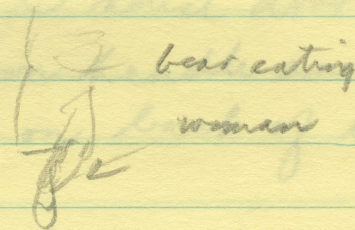 bear eating
woman